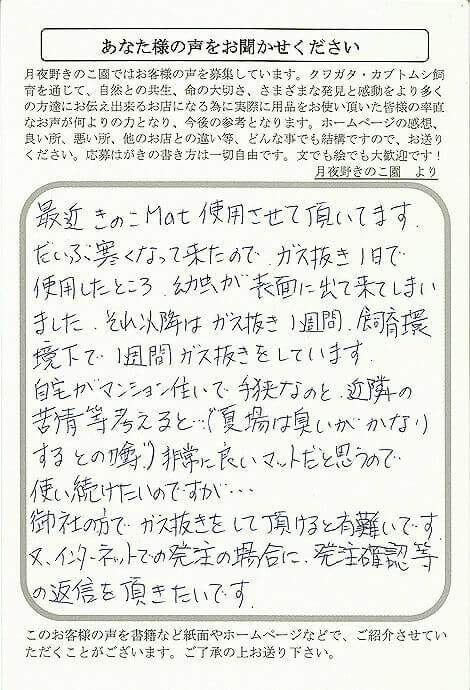 あなた様の声をお聞かせください
月夜野きのこ園ではお客様の声を募集しています。クワガタ・カブトムシ飼
育を通じて、自然との共生、命の大切さ、さまざまな発見と感動をより多く
の方達にお伝え出来るお店になる為に実際に用品をお使い頂いた皆様の率直
なお声が何よりの力となり、今後の参考となります。ホームページの感想、
良い所、悪い所、他のお店との違い等、どんな事でも結構ですので、お送り
ください。応募はがきの書き方は一切自由です。文でも絵でも大歓迎です！
月夜野きのこ園　より
最近 きのこMat 使用させて頂いてます.
だいぶ寒くなって来たので. ガス抜き 1日で
使用したところ. 幼虫が 表面に出て来てしまい
ました. それ以降は ガス抜き 1週間. 飼育環
境下で 1週間 ガス抜きをしています.
自宅がマンション住いで 手狭なのと. 近隣の
苦情等考えると…(“夏場は臭いが かなり
するとの噂”) 非常に良いマットだと思うので
使い続けたいのですが…
御社の方で ガス抜きをして頂けると有難いです.
又、インターネットでの発注の場合に. 発注確認等
の返信を頂きたいです.
このお客様の声を書籍など紙面やホームページなどで、ご紹介させてい
ただくことがございます。ご了承の上お送り下さい。